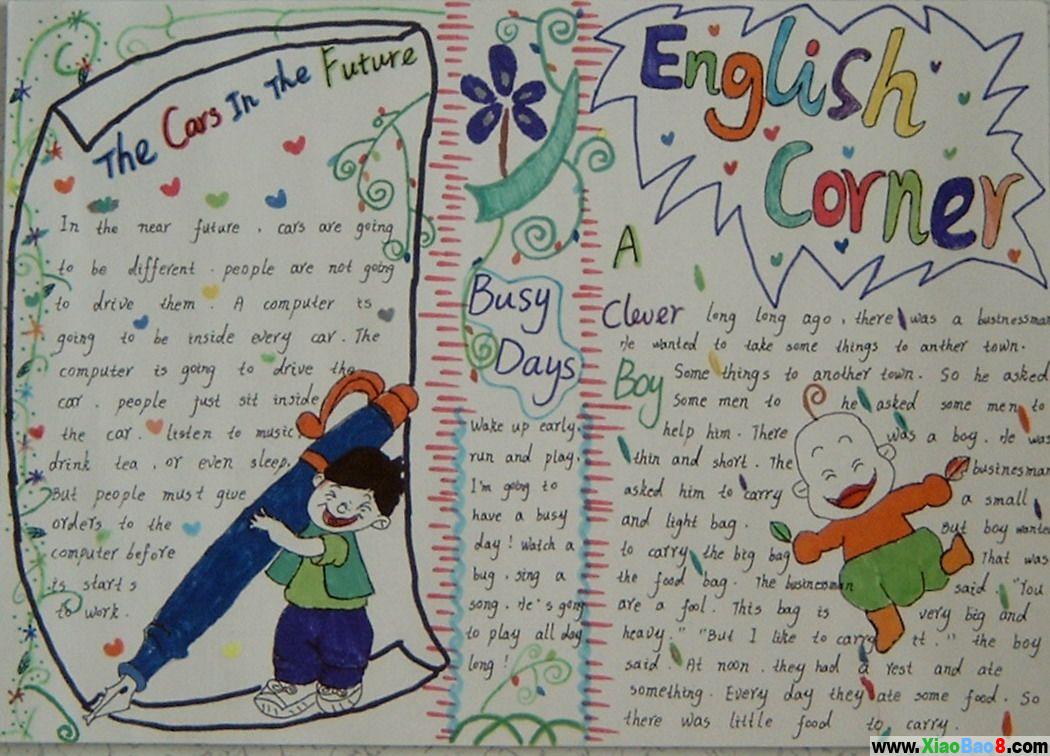 The Cars In The Future
In the near future , cars are going
to be different . people are not going
to drive them . A computer is
going to be inside every car . The
computer is going to drive the
car . people just sit inside
the car . listen to music
drink tea , or even sleep.
But people must give
orders to the
computer before
is starts
to work .
Busy
Days
Wake up early.
run and play.
I'm going to
have a busy
day ! Watch a
bug . sing a
song . He's going
to play all day
long !
English
Corner
A
Clever
Boy
long long ago , there was a businessman
He wanted to take some things to anther town .
Some things to another town . So he asked
Some men to he asked some men to
help him . There was a boy . He was
thin and short . The businesman
asked him to carry a small
and light bag . But boy wanted
to carry the big bag That was
the food bag . The businessman said . "You
are a fool . This bag is very big and
heavy ." "But I like to carry it ." the boy
said . At noon . they had a rest and ate
something . Every day they ate some food . So
there was little food to carry .
www.XiaoBao8.com